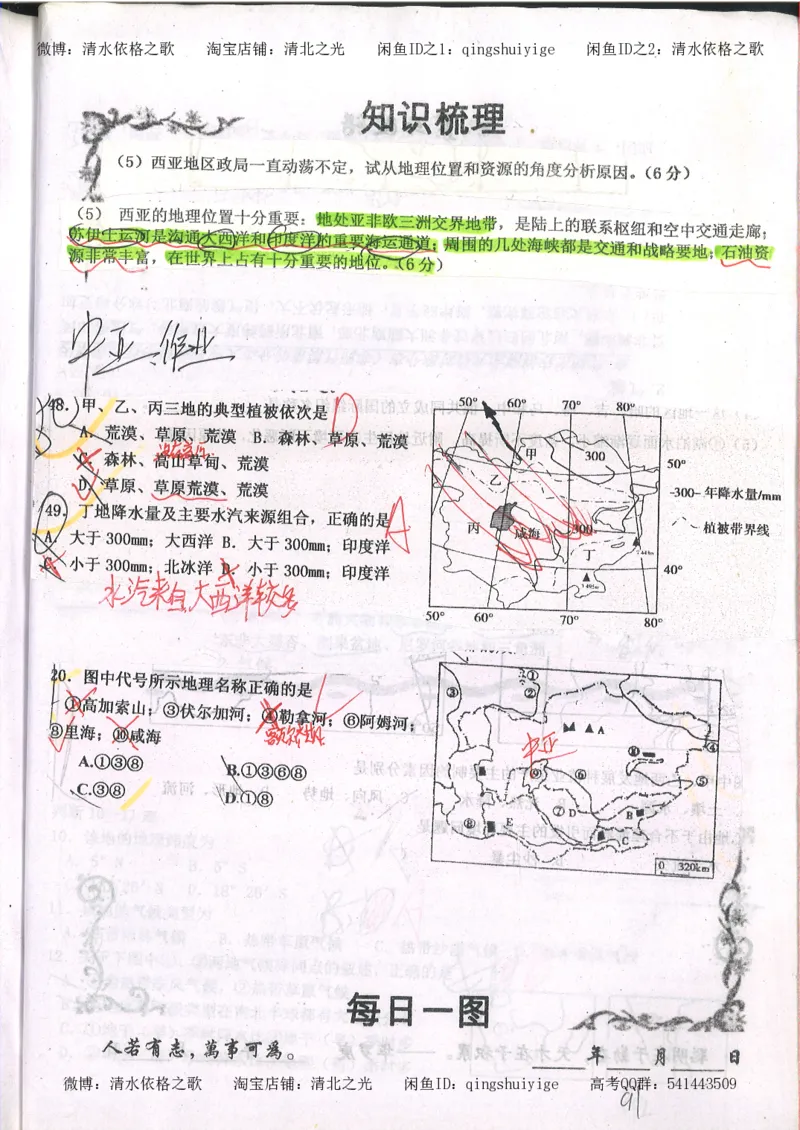 微博：清水依格之歌 淘宝店铺：清北之光 闲鱼ID之1：qingshuiyige 闲鱼ID之2：清水依格之歌
知识梳理
（5）西亚地区政局一直动荡不定，试从地理位置和资源的角度分析原因。（6分）
（5） 西亚的地理位置十分重要：地处亚非欧三洲交界地带，是陆上的联系枢纽和空中交通走廊；
苏伊士运河是沟通大西洋和印度洋的重要海运通道；周围的几处海峡都是交通和战略要地；石油资
源非常丰富，在世界上占有十分重要的地位。（6分）
中亚：作业
48．甲、乙、丙三地的典型植被依次是 D
A．荒漠、草原、荒漠 B．森林、草原、荒漠
C．森林、高山草甸、荒漠
D．草原、草原荒漠、荒漠
49．丁地降水量及主要水汽来源组合，正确的是 A
A．大于300mm；大西洋 B．大于300mm；印度洋
C．小于300mm；北冰洋 D．小于300mm；印度洋
水汽来自大西洋较多
50° 60° 70° 80°
甲 300
50°
乙
-300- 年降水量/mm
丙 咸海 300
植被带界线
丁
40°
50° 60° 70° 80°
20．图中代号所示地理名称正确的是
①高加索山；③伏尔加河；④勒拿河；⑥阿姆河；
⑨里海；⑩咸海
A.①③⑧ B.①③⑥⑧
C.③⑧ D.①⑧
① ② ③
A
中亚
⑩ ④
⑨ ⑥ ⑤
⑦ D B
⑧ E C
0 320km
每日一图
人若有志，萬事可爲。
年 月 日
微博：清水依格之歌 淘宝店铺：清北之光 闲鱼ID：qingshuiyige 高考QQ群：541443509
91